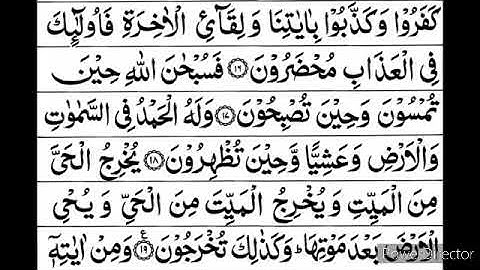 كَفَرُوْا وَكَذَّبُوْا بِاٰيٰتِنَا وَلِقَآئِ الْاٰخِرَةِ فَاُولٰٓئِكَ
فِى الْعَذَابِ مُحْضَرُوْنَ ۝۱۶ فَسُبْحٰنَ اللّٰهِ حِيْنَ
تُمْسُوْنَ وَحِيْنَ تُصْبِحُوْنَ ۝۱۷ وَلَهُ الْحَمْدُ فِى السَّمٰوٰتِ
وَالْاَرْضِ وَعَشِيًّا وَّحِيْنَ تُظْهِرُوْنَ ۝۱۸ يُخْرِجُ الْحَىَّ
مِنَ الْمَيِّتِ وَيُخْرِجُ الْمَيِّتَ مِنَ الْحَىِّ وَيُحْىِ
الْاَرْضَ بَعْدَ مَوْتِهَا ؕ وَكَذٰلِكَ تُخْرَجُوْنَ ۝۱۹ ع وَمِنْ اٰيٰتِهٖۤ
PowerDirector